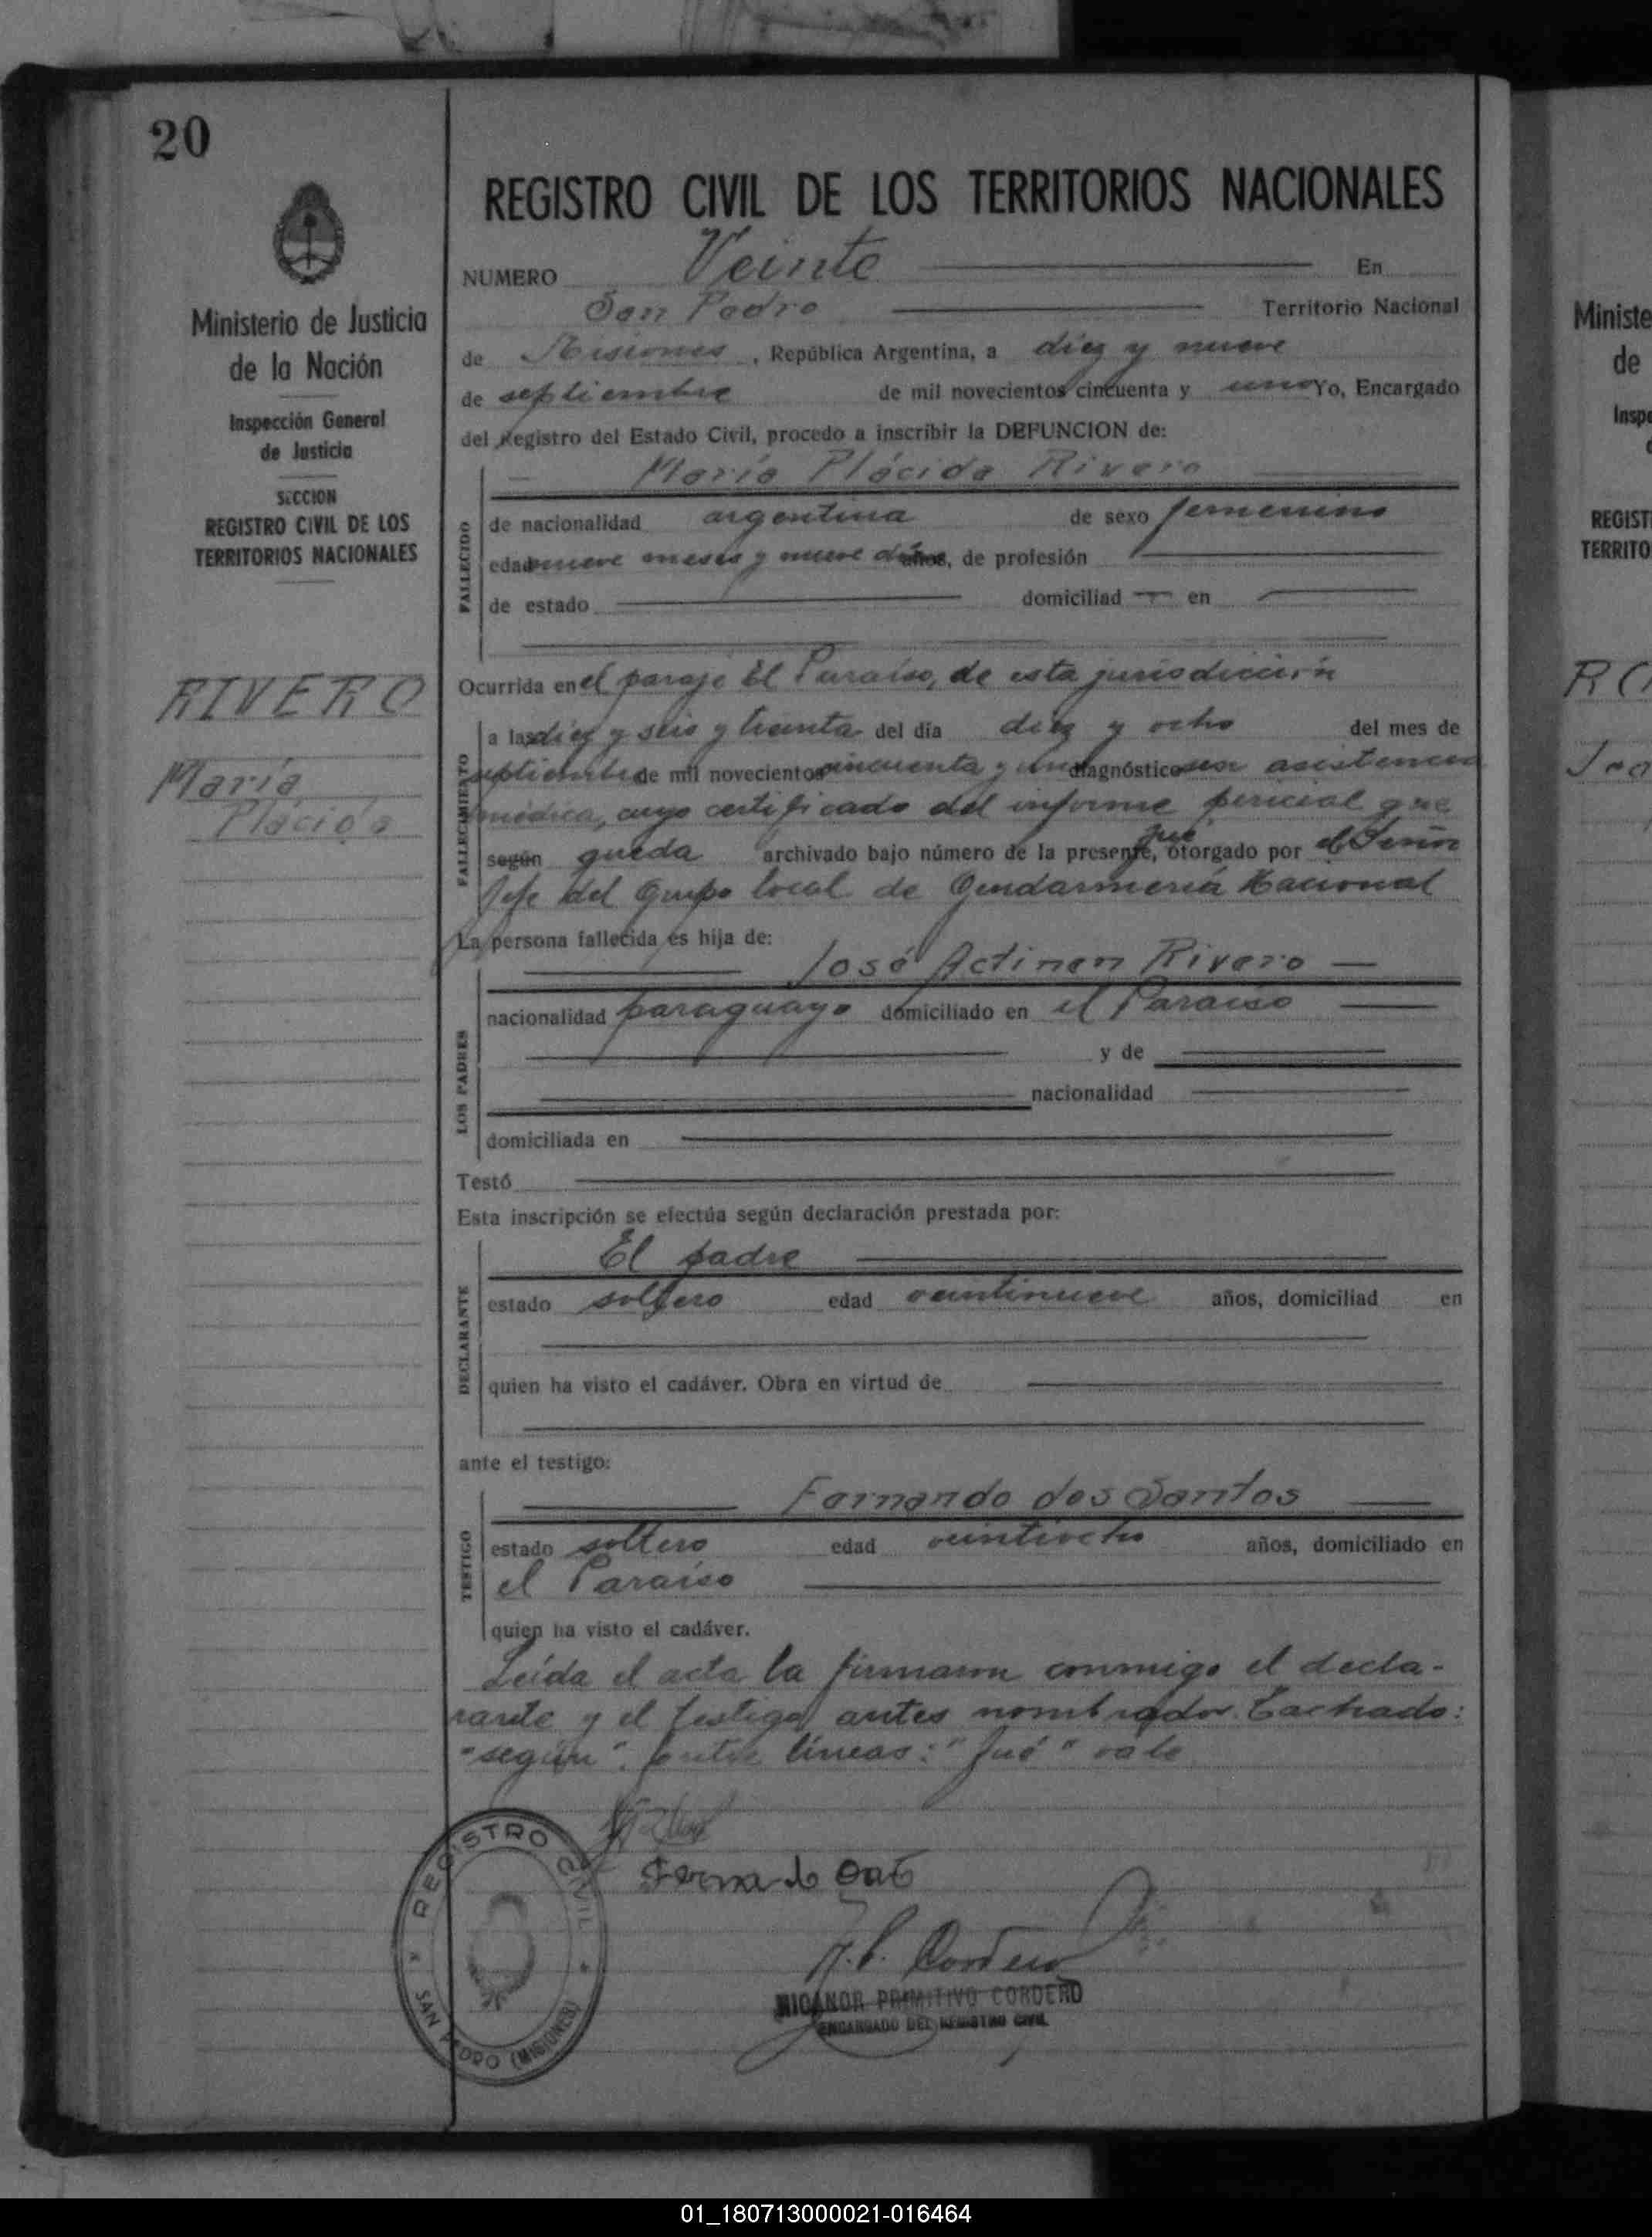 20
REGISTRO CIVIL DE LOS TERRITORIOS NACIONALES
Ministerio de Justicia
de la Nación
Inspección General
de Justicia
SECCION
REGISTRO CIVIL DE LOS
TERRITORIOS NACIONALES
RIVERO
María
Plácida
NUMERO Veinte En
San Pedro Territorio Nacional
de Misiones, República Argentina, a diez y nueve
de septiembre de mil novecientos cincuenta y uno Yo, Encargado
del Registro del Estado Civil, procedo a inscribir la DEFUNCION de:
María Plácida Rivero
FALLECIDO
de nacionalidad argentina de sexo femenino
edad nueve meses y nueve días años, de profesión
de estado domiciliad en
Ocurrida en el paraje El Paraíso, de esta jurisdicción
FALLECIMIENTO
a las diez y seis y treinta del día diez y ocho del mes de
septiembre de mil novecientos cincuenta y uno diagnóstico sin asistencia
médica, cuyo certificado del informe pericial que
según queda archivado bajo número de la presente, fué otorgado por el Señor
Jefe del Grupo local de Gendarmería Nacional
La persona fallecida es hija de:
LOS PADRES
José Rivero
nacionalidad paraguayo domiciliado en el Paraíso
y de
nacionalidad
domiciliada en
Testó
Esta inscripción se efectúa según declaración prestada por:
DECLARANTE
El padre
estado soltero edad veintinueve años, domiciliad en
quien ha visto el cadáver. Obra en virtud de
ante el testigo:
TESTIGO
Fernando dos Santos
estado soltero edad veintiocho años, domiciliado en
el Paraíso
quien ha visto el cadáver.
Leída el acta la firmaron conmigo el decla-
rante y el testigo antes nombrados. Tachado:
"según". Entre líneas: "fué" vale
REGISTRO CIVIL
SAN PEDRO (MISIONES)
N. P. Cordero
NICANOR PRIMITIVO CORDERO
ENCARGADO DEL REGISTRO CIVIL
Ministe
de
Inspe
REGIST
TERRITO
01_180713000021-016464